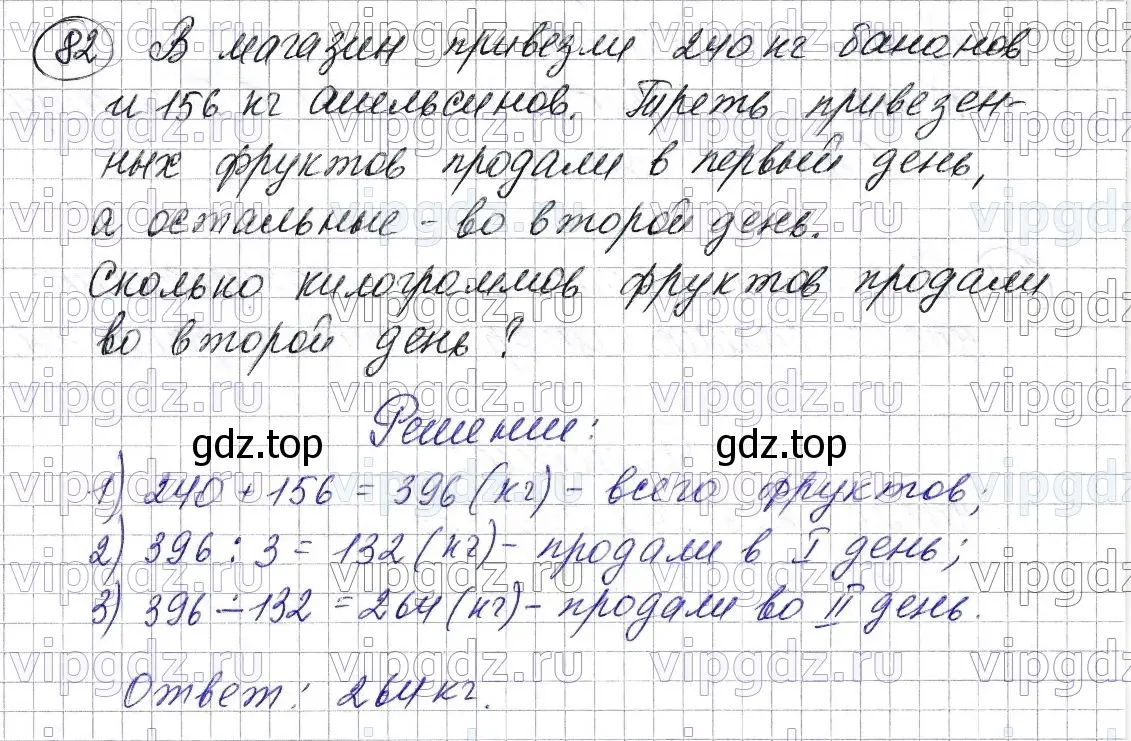 82 В магазин привезли 240 кг бананов
и 156 кг апельсинов. Треть привезен-
ных фруктов продали в первый день,
а остальные - во второй день.
Сколько килограммов фруктов продали
во второй день?
Решение:
gdz.top gdz.top
1) 240 + 156 = 396 (кг) - всего фруктов;
2) 396 : 3 = 132 (кг) - продали в I день;
3) 396 - 132 = 264 (кг) - продали во II день.
Ответ: 264 кг.
vipgdz.ru